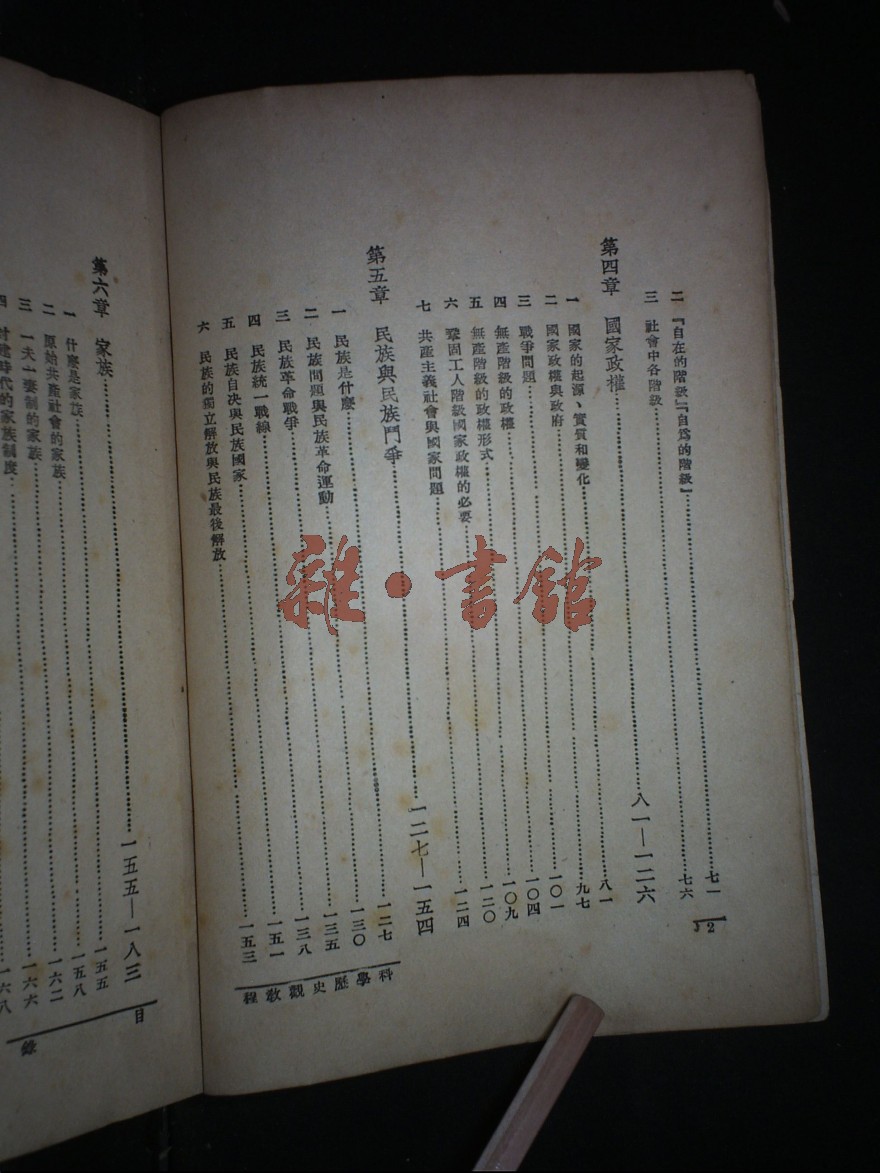 二 『自在的階級』『自爲的階級』……七一
三 社會中各階級……七六
第四章 國家政權……八一—一二六
一 國家的起源、實質和變化……八一
二 國家政權與政府……九七
三 戰爭問題……一〇一
四 無產階級的政權……一〇四
五 無產階級的政權形式……一〇九
六 鞏固工人階級國家政權的必要……一二〇
七 共產主義社會與國家問題……一二四
第五章 民族與民族鬥爭……一二七—一五四
一 民族是什麼……一二七
二 民族問題與民族革命運動……一三〇
三 民族革命戰爭……一三五
四 民族統一戰線……一三八
五 民族自决與民族國家……一五一
六 民族的獨立解放與民族最後解放……一五三
2
程教觀史歷學科
第六章 家族……一五五—一八三
一 什麼是家族……一五五
二 原始共產社會的家族……一五八
三 一夫一妻制的家族……一六二
四 封建時代的家族制度……一六六
一六八
目
錄
雜·書舘